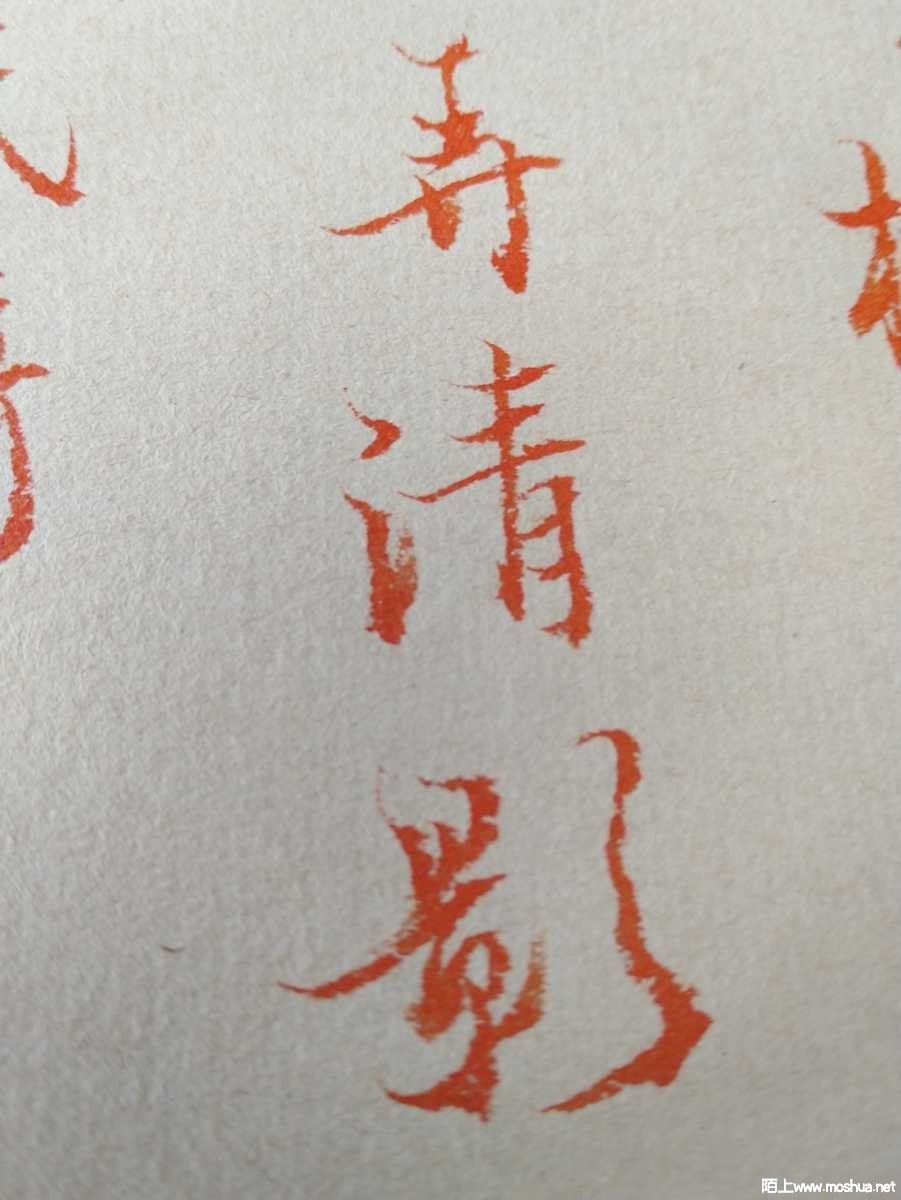 弄清影
陌上www.moshua.net